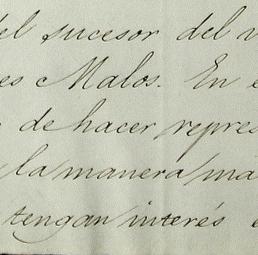 del sucesor del
es Malos. En
de hacer repres
la manera má
tengan interés e